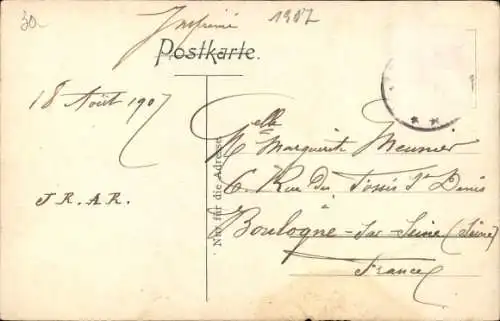 30.-
Imprimé
1907
Postkarte.
18 Août 1907
J.R.A.R.
Nur für die Adresse
Melle Marguerite Meunier
6 Rue des Fossés St Denis
Boulogne-sur-Seine (Seine)
France